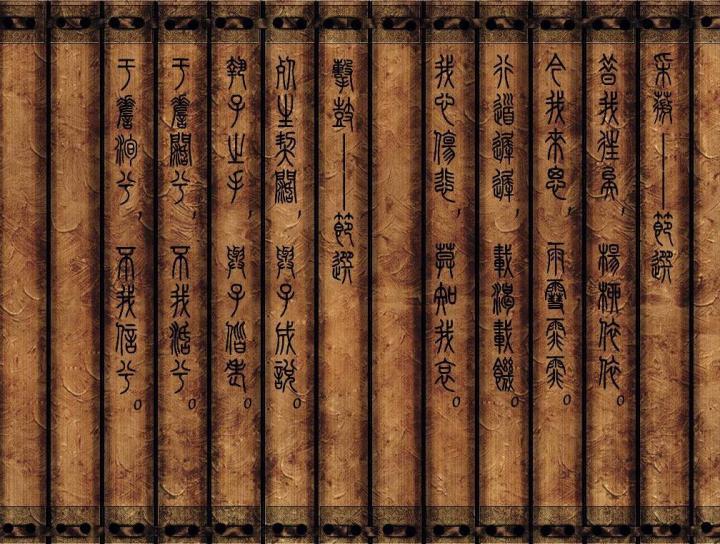 采薇——節選
昔我往矣,楊柳依依。
今我來思,雨雪霏霏。
行道遲遲,載渴載饑。
我心傷悲,莫知我哀。
擊鼓——節選
死生契闊,與子成說。
執子之手,與子偕老。
于嗟闊兮,不我活兮。
于嗟洵兮,不我信兮。